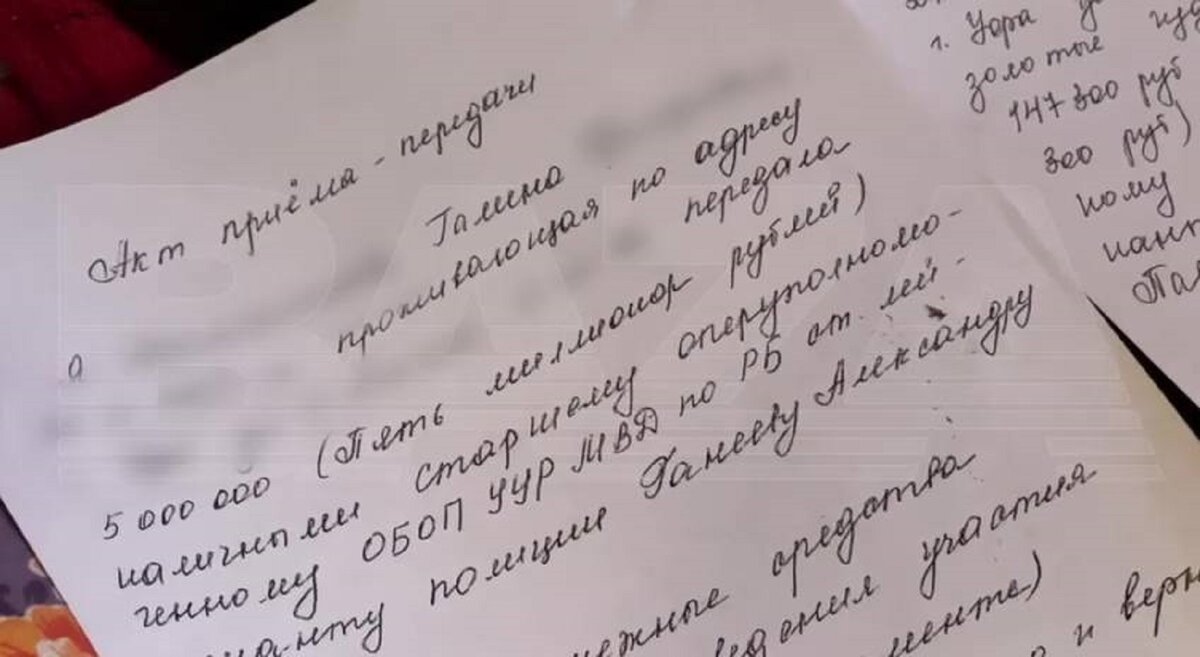 Акт приёма-передачи
Я Галина
проживающая по адресу
передала
5 000 000 (Пять миллионов рублей)
наличными старшему оперуполномо-
ченному ОБОП УУР МВД по РБ от лей-
нанту полиции Ганееву Александру
нежные средства
ведения участия
менте)
и верн
г. Уфа
золотые изд
147 300 руб
300 руб)
ному
нант
BAZA